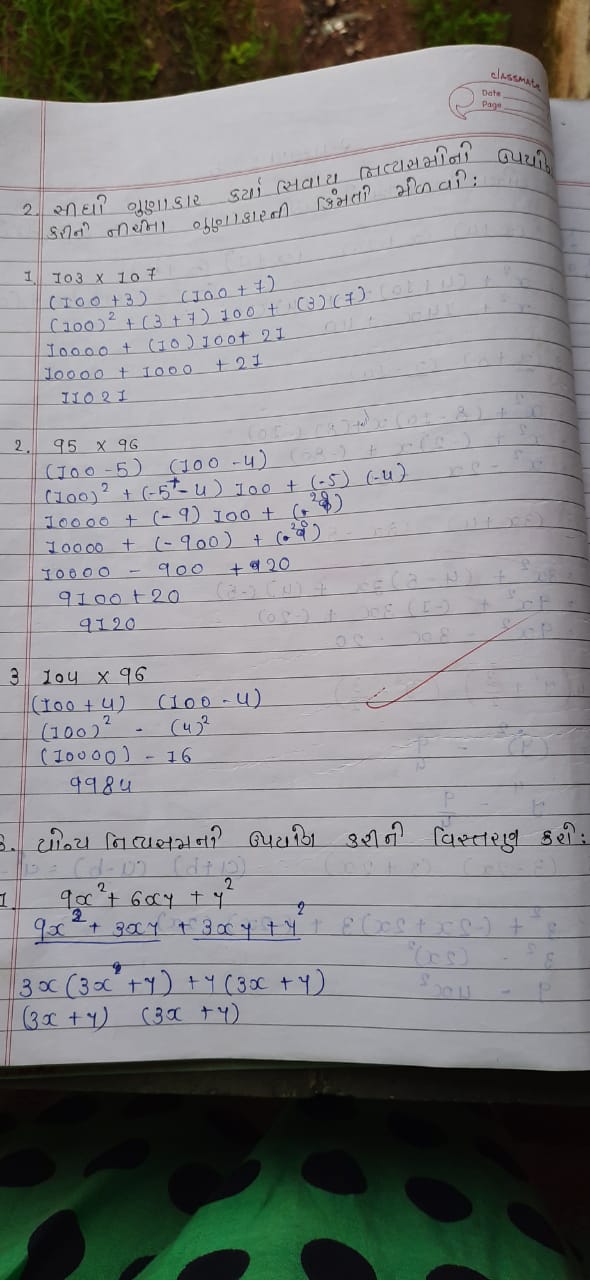 classmate
Date
Page
2. સીધી ગુણાકાર કર્યા સિવાય નિત્યસમીની ઉપયોગ
કરીની નીચેના ગુણાકારની કિંમતી મીળવી:
1. 103 x 107
(100 +3) (100 +7)
(100)² + (3 + 7) 100 + (3) (7)
10000 + (10) 100 + 21
10000 + 1000 + 21
11021
2. 95 x 96
(100 - 5) (100 - 4)
(100)² + (-5 + - 4) 100 + (-5) (-4)
10000 + (-9) 100 + (+20)
10000 + (-900) + (+20)
10000 - 900 + 20
9100 + 20
9120
3 104 x 96
(100 + 4) (100 - 4)
(100)² - (4)²
(10000) - 16
9984
3. યોગ્ય નિત્યસમની ઉપયોગ કરીની વિસ્તરણ કરી:
1. 9x² + 6xy + y²
9x² + 3xy + 3xy + y²
3x (3x + y) + y (3x + y)
(3x + y) (3x + y)